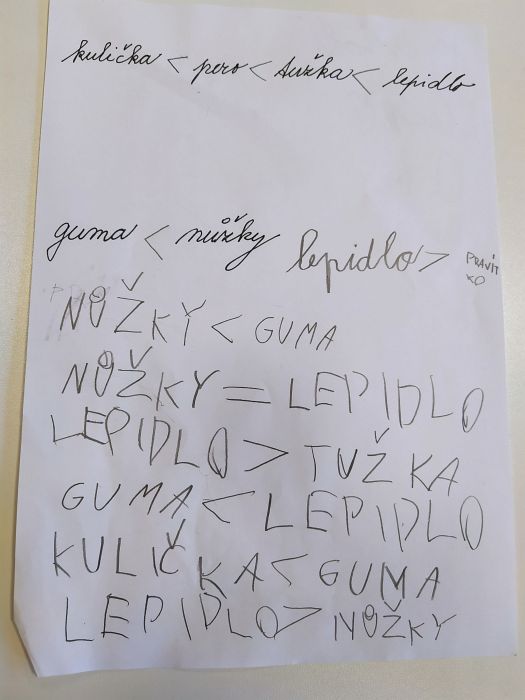 kulička < pero < tužka < lepidlo
guma < nůžky lepidlo > PRAVÍT
KO
NŮŽKY < GUMA
NŮŽKY = LEPIDLO
LEPIDLO > TUŽKA
GUMA < LEPIDLO
KULIČKA < GUMA
LEPIDLO > NŮŽKY